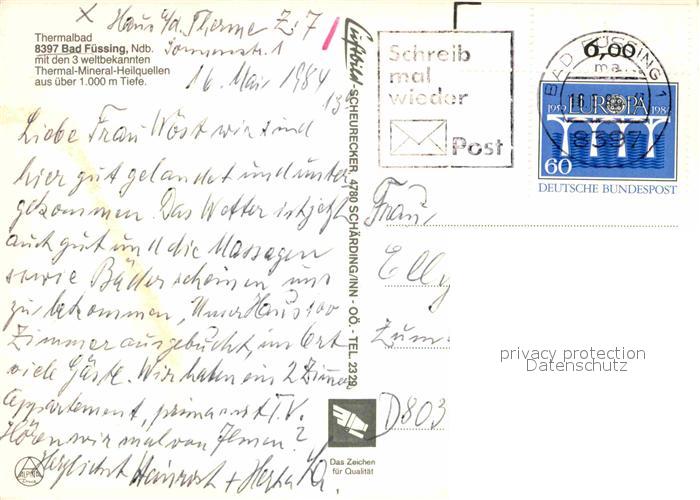 X Haus a/d. Therme Z: 7
Sonnenstr. 1
Thermalbad
8397 Bad Füssing, Ndb.
mit den 3 weltbekannten
Thermal-Mineral-Heilquellen
aus über 1.000 m Tiefe.
16. Mai 1984
Liebe Frau Wöst wir sind
hier gut gelandet und unter
gekommen. Das Wetter ist jetzt
auch gut und die Massagen
sowie Bäder scheinen uns
zu bekommen, Unser Haus 100
Zimmer ausgebucht, im Ort
viele Gäste. Wir haben ein 2 Zimmer
Appartement, prima mit T.V.
Hören wir mal von Ihnen?
Herzlichst Heinrich + Hertha
Das Zeichen
für Qualität
1
Luftbild-SCHEURECKER, 4780 SCHÄRDING/INN - OÖ. - TEL. 2329
Schreib
mal
wieder
Post
6,00
ma
BAD FÜSSING 1
8397
1959 EUROPA 1984
60
DEUTSCHE BUNDESPOST
Frau
Elly
Zum
D803
privacy protection
Datenschutz